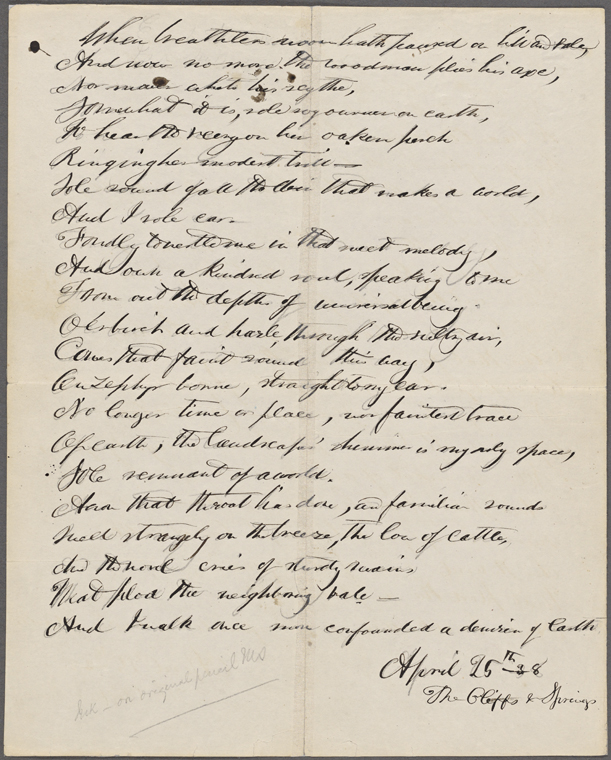 When breathless noon hath paused on hill and vale,
And now no more the woodman plies his axe,
Nor mower whets his scythe,
Somewhat it is, sole sojourner on earth,
To hear the veery on her oaken perch
Ringing her modest trill—
Sole sound of all the din that makes a world,
And I sole ear.
Fondly to nestle me in that sweet melody,
And own a kindred soul, speaking to me
From out the depths of universal being.
O'er birch and hazle, through the sultry air,
Comes that faint sound this way,
On Zephyr borne, straight to my ear.
No longer time or place, nor faintest trace
Of earth, the landscape's shimmer is my only space,
Sole remnant of a world.
Anon that throat has done, and familiar sounds
Swell strangely on the breeze, the low of cattle,
And the novel cries of sturdy swains
That plod the neighboring vale—
And I walk once more confounded a denizen of Earth
April 25th 38
The Cliffs & Springs
Ink – on original pencil MS